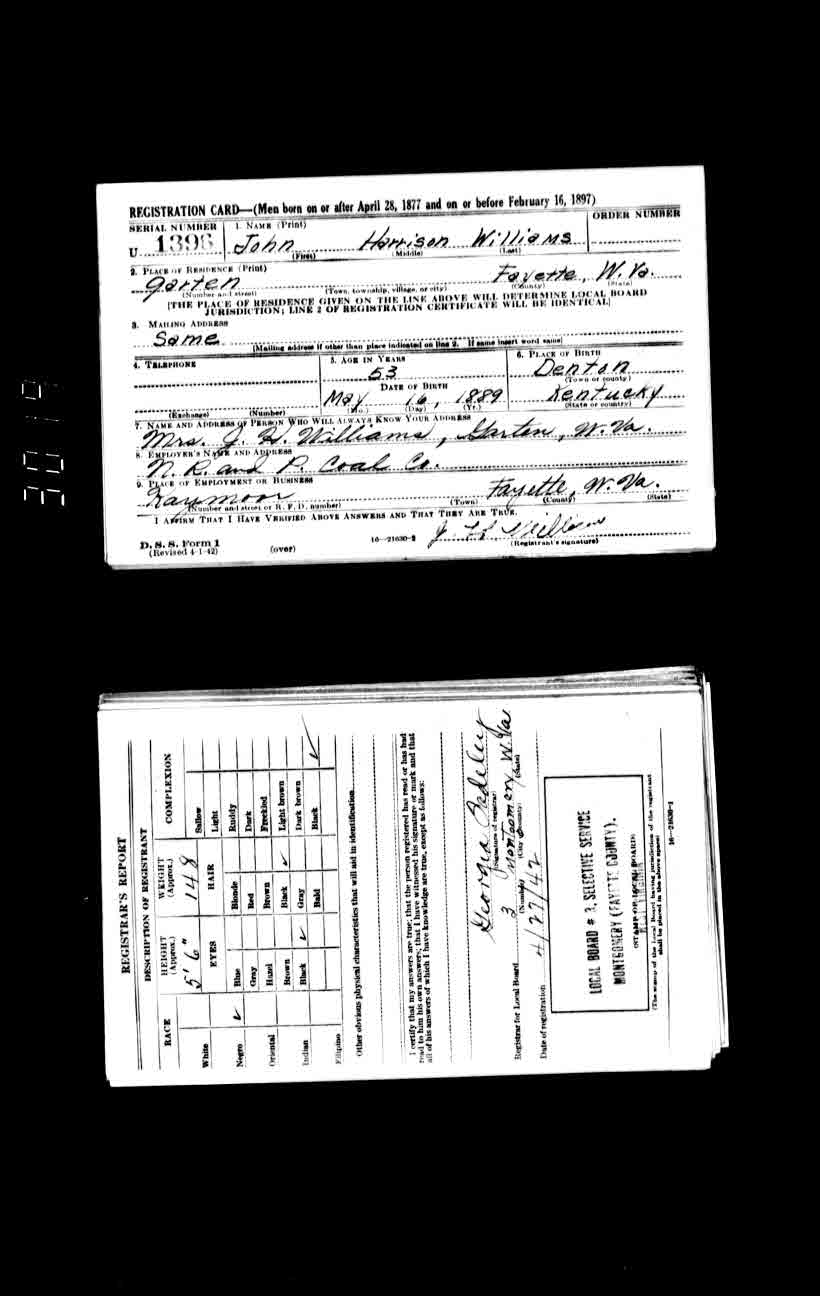 REGISTRATION CARD—(Men born on or after April 28, 1877 and on or before February 16, 1897)
SERIAL NUMBER 1. NAME (Print) ORDER NUMBER
U 1396 John Harrison Williams
(First) (Middle) (Last)
2. PLACE OF RESIDENCE (Print)
Garten Fayette, W. Va.
(Number and street) (Town, township, village, or city) (County) (State)
[THE PLACE OF RESIDENCE GIVEN ON THE LINE ABOVE WILL DETERMINE LOCAL BOARD
JURISDICTION; LINE 2 OF REGISTRATION CERTIFICATE WILL BE IDENTICAL]
3. MAILING ADDRESS
Same
[Mailing address if other than place indicated on line 2. If same insert word same]
4. TELEPHONE 5. AGE IN YEARS 6. PLACE OF BIRTH
53 Denton
DATE OF BIRTH (Town or county)
May 16, 1889 Kentucky
(Exchange) (Number) (Mo.) (Day) (Yr.) (State or country)
7. NAME AND ADDRESS OF PERSON WHO WILL ALWAYS KNOW YOUR ADDRESS
Mrs. J. H. Williams, Garten, W. Va.
8. EMPLOYER'S NAME AND ADDRESS
N. R. and P. Coal Co.
9. PLACE OF EMPLOYMENT OR BUSINESS
Kaymoor Fayette, W. Va.
(Number and street or R. F. D. number) (Town) (County) (State)
I AFFIRM THAT I HAVE VERIFIED ABOVE ANSWERS AND THAT THEY ARE TRUE.
D. S. S. Form 1 J H Williams
(Revised 4-1-42) (over) 16—21630-2 (Registrant's signature)
30 19
REGISTRAR'S REPORT
DESCRIPTION OF REGISTRANT
RACE HEIGHT (Approx.) WEIGHT (Approx.) COMPLEXION
5' 6" 148
White EYES HAIR Sallow
Light
Negro ✓ Blue Blonde Ruddy
Gray Red Dark
Oriental Hazel Brown Freckled
Brown Black ✓ Light brown
Indian Black ✓ Gray Dark brown
Filipino Bald Black ✓
Other obvious physical characteristics that will aid in identification
I certify that my answers are true; that the person registered has read or has had
read to him his own answers; that I have witnessed his signature or mark and that
all of his answers of which I have knowledge are true, except as follows:
Georgia
(Signature of registrar)
Registrar for Local Board 3 Montgomery W. Va
(Number) (City or county) (State)
Date of registration 4/27/42
LOCAL BOARD # 3, SELECTIVE SERVICE
MONTGOMERY (FAYETTE COUNTY),
WEST VIRGINIA
(STAMP OF LOCAL BOARD)
(The stamp of the Local Board having jurisdiction of the registrant
shall be placed in the above space)
16—21630-1